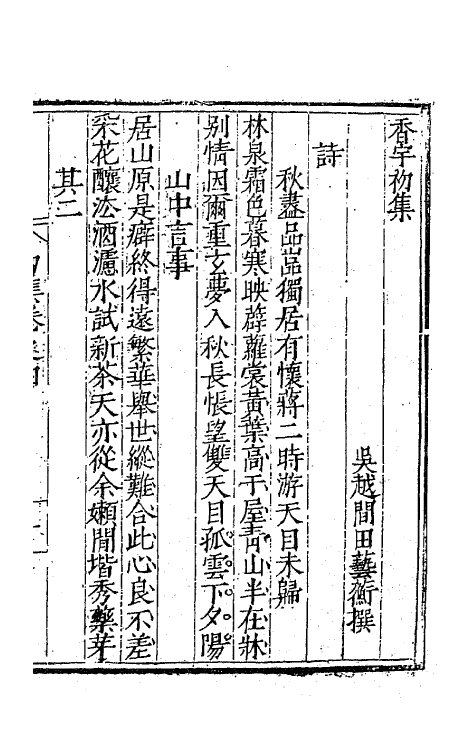 香宇初集
吳越間田藝衡撰
詩
秋盡品嵓獨居有懷蔣二時游天目未歸
林泉霜色暮寒映薜蘿裳黃葉高于屋青山半在牀
别情因爾重玄夢入秋長悵望雙天目孤雲下夕陽
山中言事
居山原是癖終得遠繁華舉世縱難合此心良不差
采花釀法酒濾水試新茶天亦從余嬾閒堦秀藥芽
其二